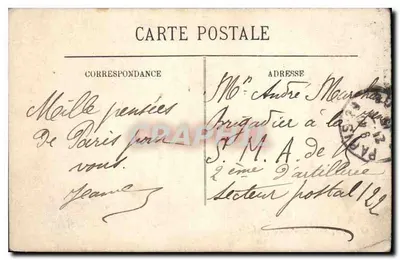 CARTE POSTALE
CORRESPONDANCE
ADRESSE
Mille pensées
De Paris pour
vous.
Jeanne
Mr André
Brigadier a la
S. M. A. de
2ème d'artillerie
secteur postal 122
PARIS